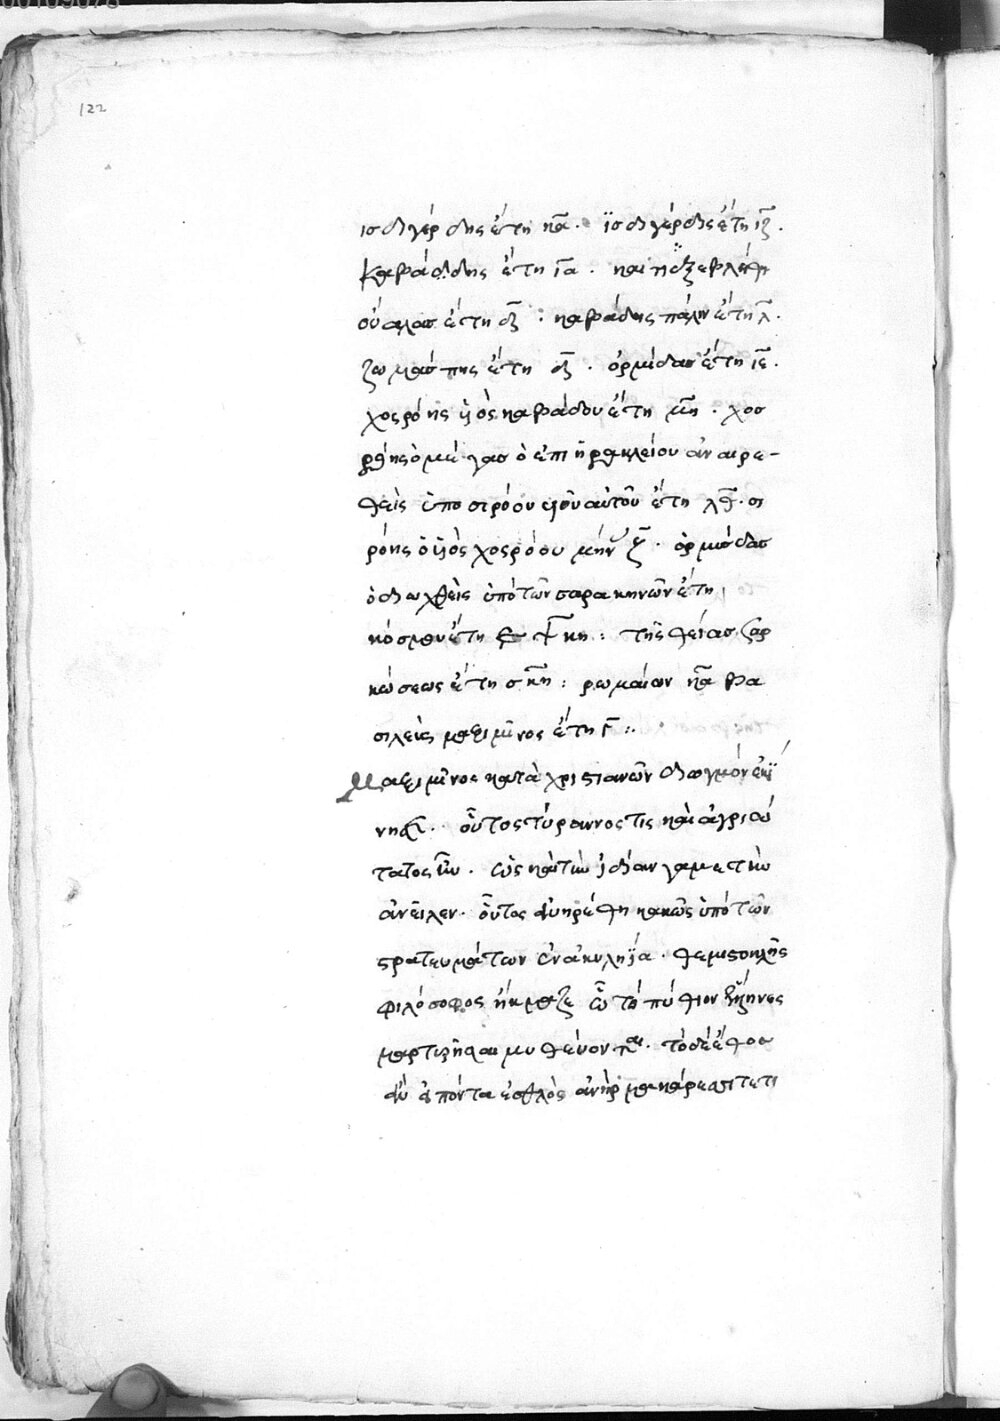 122
ισδιγέρδης ἔτη κ̅α̅. ϊσδιγέρδης ἔτη ι̅ζ̅.
Καβάδδης ἔτη ι̅α̅. καὶ ἐξεβλήθη
οὐάλασ ἔτη δ̅. καβάδης πάλιν ἔτη λ̅.
ζωμάσπης ἔτη δ̅. ὁρμίδασ ἔτη ι̅ε̅.
χοσρόης ὑιὸς καβάδου ἔτη μ̅η̅. χοσ
ρόης ὁ μέγασ ὁ ἐπι ἡρακλείου ἀναιρε-
θεὶς ὑπο σιρόου υἱοῦ αὐτοῦ ἔτη λ̅θ̅. σι
ρόης ὁ ὑιὸς χοσρόου μῆν. ὁρμισδασ
ὁ διωχθεὶς ὑπὸ τῶν σαρακηνῶν ἔτη
κόσμου ἔτη ψ̅κ̅η̅: τῆς θείασ σαρ
κώσεως ἔτη σ̅κ̅η̅: ρωμαίων κ̅α̅ βα
σιλεὺς μαξιμῖνος ἔτη γ̅:
Μαξιμῖνος κατὰ χριστιανῶν διωγμὸν ἐκί
νησε. οὗτος τύραννος τις καὶ ἀγριώ
τατος ἦν. ὡς καὶ τὴν ἰδίαν γαμετὴν
ἀνεῖλεν. οὗτος ἀνηρέθη κακῶς ὑπὸ τῶν
στρατευμάτων ἐν ἀκυληΐα. θεμιστοκλῆς
φιλόσοφος ἤκμαζε τὸ πύθιον
τόσδε ἔφασ
ἀπόντα ἐσθλὸς ἀνὴρ